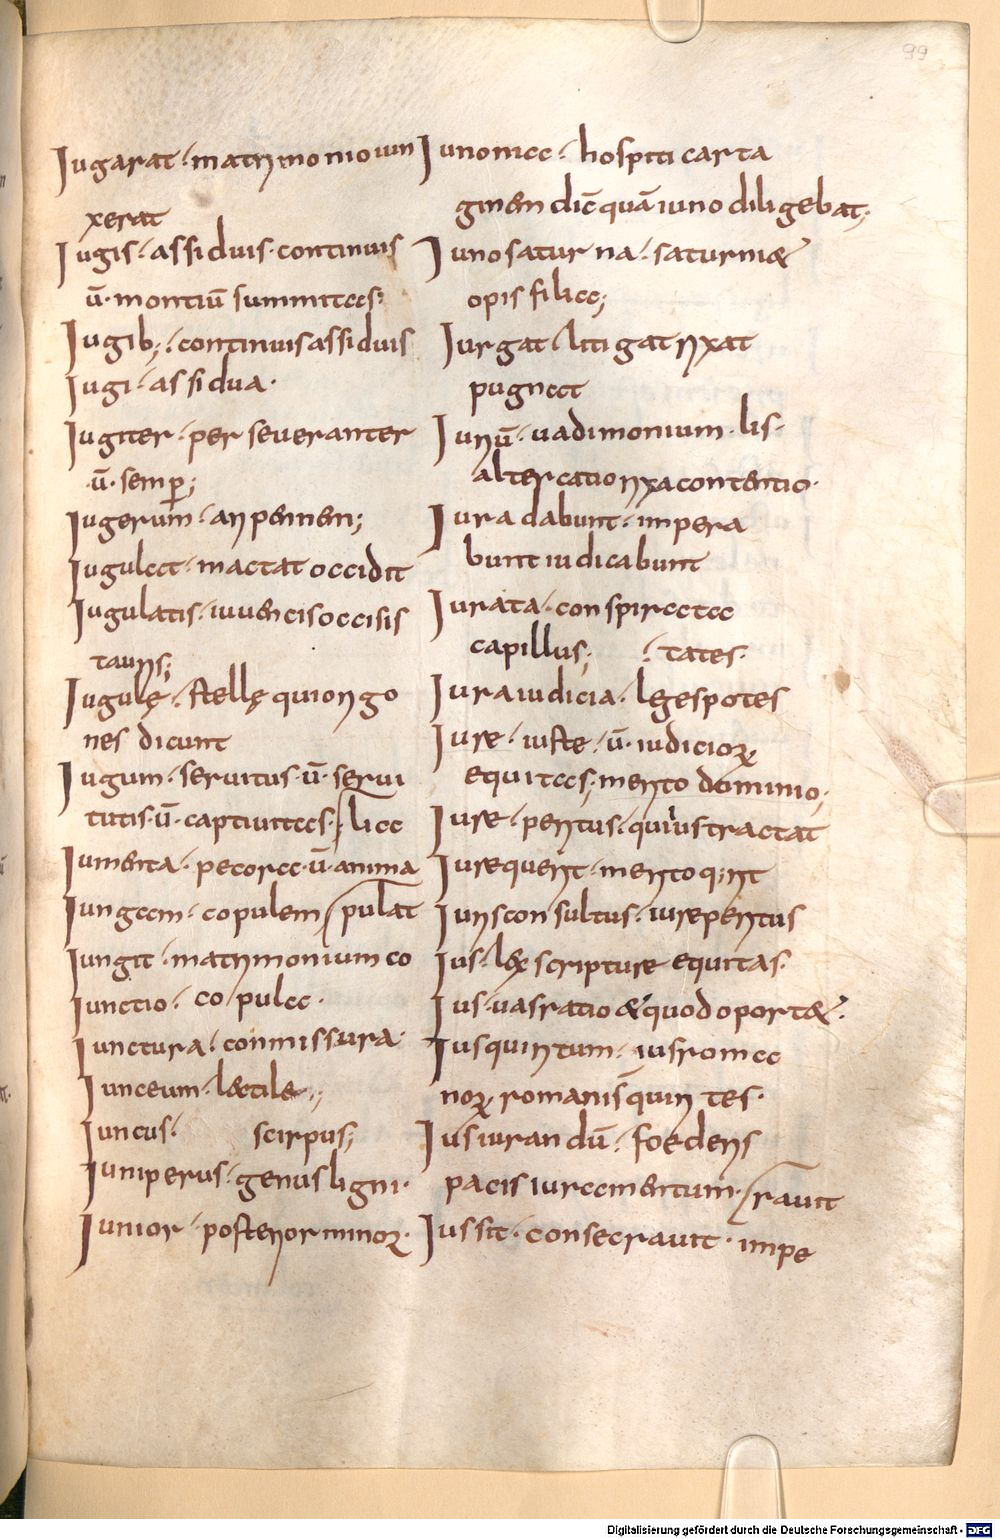 99
Iugarat · matrimonio iun
xerat
Iugis · assiduis · continuis
ū · montiū summitas ·
Iugib; · continuis assiduis
Iugi · assidua ·
Iugiter · perseveranter
ū · semp;
Iugerum · aripennen;
Iugulat · mactat occidit
Iugulatis · iuvencis occisis
tauris;
Iugulę · stellę qui origo
nes dicunt
Iugum · servitus · ū · servi
tutis · ū · captivitas ·
Iumenta · pecora · ū · anima lia
Iungam · copulem
Iungit · matrimonium co pulat
Iunctio · copula ·
Iunctura · conmissura ·
Iunceum · lectile ;
Iuncus · scirpus;
Iuniperus · genus ligni ·
Iunior · posterior minor ·
Iunonia · hospiti carta
ginen dic̄ quā iuno diligebat;
Iuno saturna · saturni &
opis filia;
Iurgat · litigat rixat
pugnat
Iuriū · vadimonium · lis ·
altercatio rixa contentio ·
Iura dabunt · impera
bunt iudicabunt
Iurata · conspirata
capillus;
Iura iudicia · leges potes tates ·
Iure · iuste · ū · iudicioꝝ
equitas; merito dominio;
Iure · peritus · qui ius tractat
Iure querit · merito q;rit
Iuris consultus · iure peritus
Ius · lex scripture equitas ·
Ius · vas ratio & quod oport& ·
Ius quiritum · ius roma
noꝝ romanis quirites ·
Ius iurandū · foederis
pacis iuramentum ·
Iussit · consecravit · impe ravit
Digitalisierung gefördert durch die Deutsche Forschungsgemeinschaft - DFG